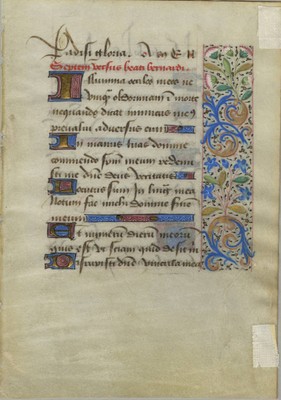 Padisi gloria. A m E N
Septem versus beati bernardi.
Illumina oculos meos ne
unqz obdormiam i morte
nequando dicat inimicus me9
prevalui adversus eum
In manus tuas domine
commendo spm meum redem
isti me dne deus veritatis
Locutus sum in ligua mea
Notum fac michi domine fine
meum
Et numeru dieru meoru
quis est ut sciam quid desit m
Dirupisti dne vincula mea